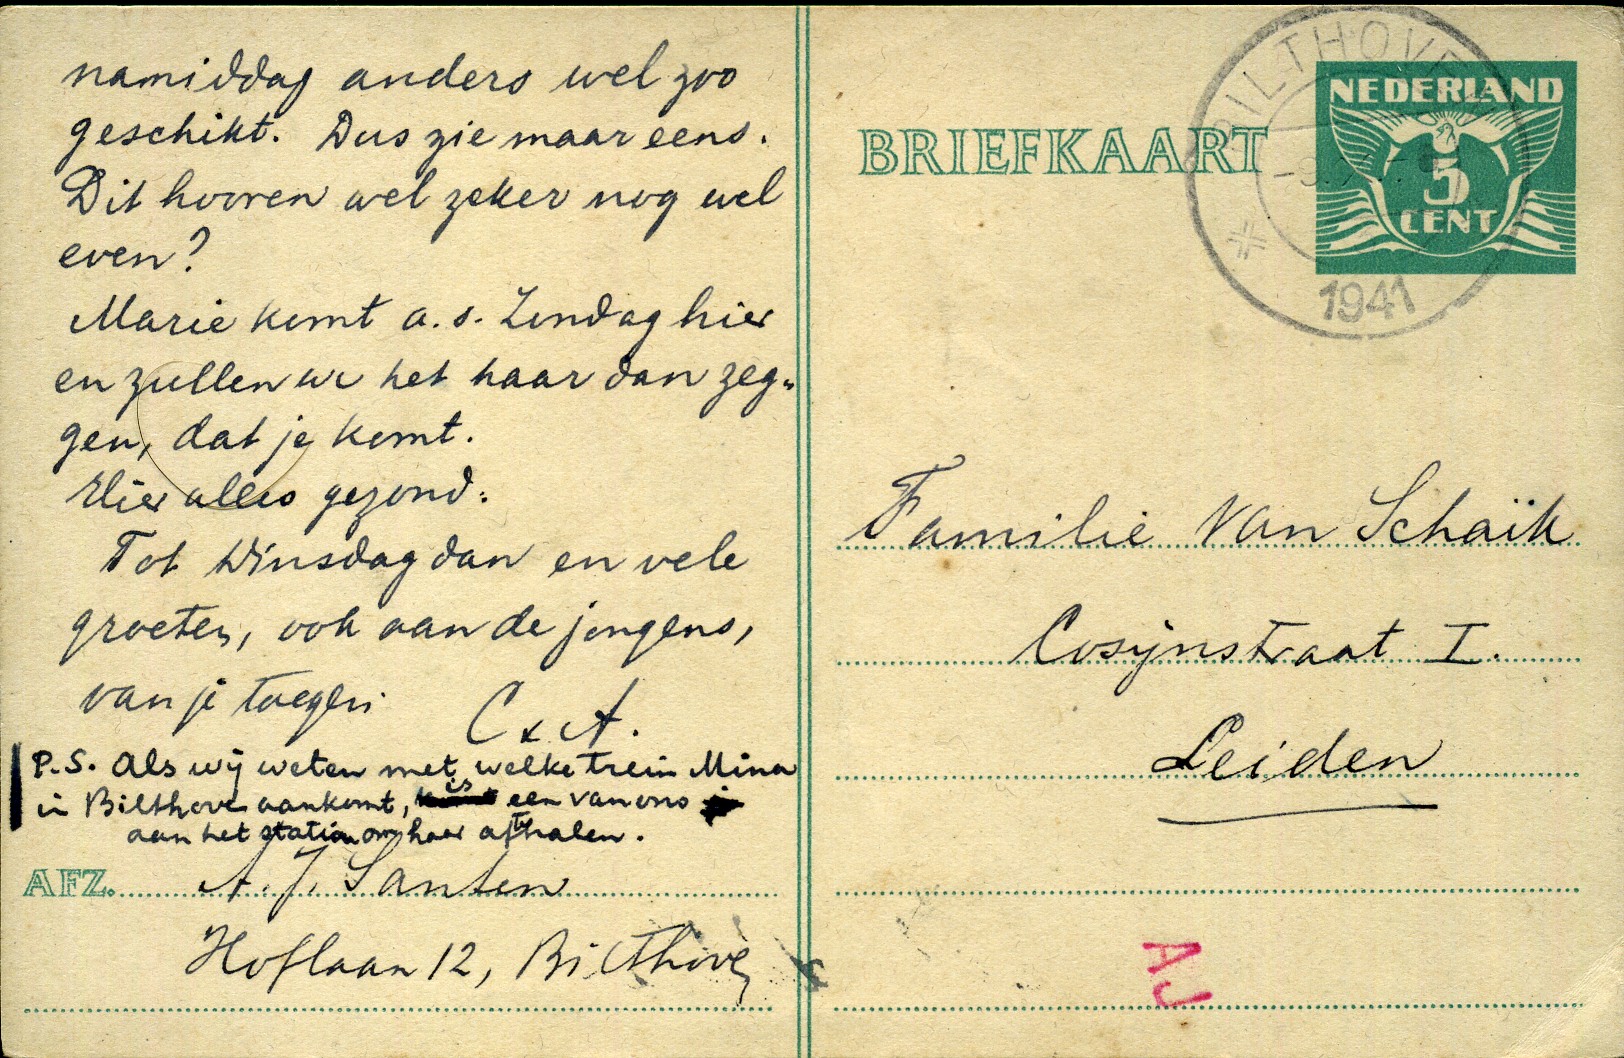 namiddag anders wel zoo
geschikt. Dus zie maar eens.
Dit hooren wel zeker nog wel
even?
Marie komt a.s. Zondag hier
en zullen we het haar dan zeg-
gen, dat je komt.
Hier alles gezond.
Tot Dinsdag dan en vele
groeten, ook aan de jongens,
van je toegen.
C & A.
P.S. Als wij weten met welke trein Mina
in Bilthoven aankomt, is een van ons
aan het station om haar af te halen.
AFZ. A. J. Santen
Hoflaan 12, Bilthoven
BRIEFKAART
BILTHOVEN
1941
NEDERLAND
5
CENT
Familie Van Schaïk
Cosijnstraat I.
Leiden
AJ